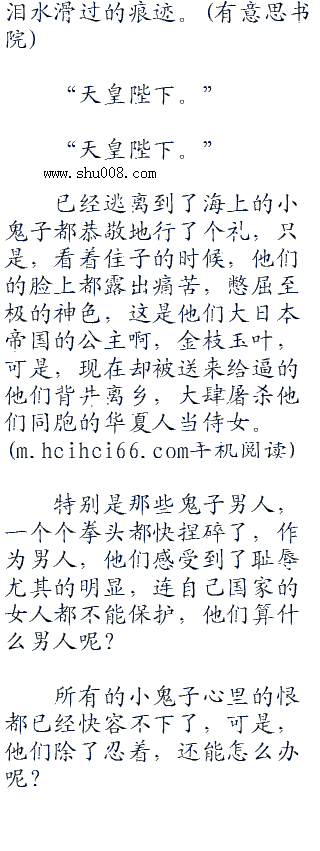 泪水滑过的痕迹。(有意思书
院)
“天皇陛下。”
“天皇陛下。”
www.shu008.com
已经逃离到了海上的小
鬼子都恭敬地行了个礼，只
是，看着佳子的时候，他们
的脸上都露出痛苦，憋屈至
极的神色，这是他们大日本
帝国的公主啊，金枝玉叶，
可是，现在却被送来给逼的
他们背井离乡，大肆屠杀他
们同胞的华夏人当侍女。
(m.hcihci66.com手机阅读)
特别是那些鬼子男人，
一个个拳头都快捏碎了，作
为男人，他们感受到了耻辱
尤其的明显，连自己国家的
女人都不能保护，他们算什
么男人呢？
所有的小鬼子心里的恨
都已经快容不下了，可是，
他们除了忍着，还能怎么办
呢？